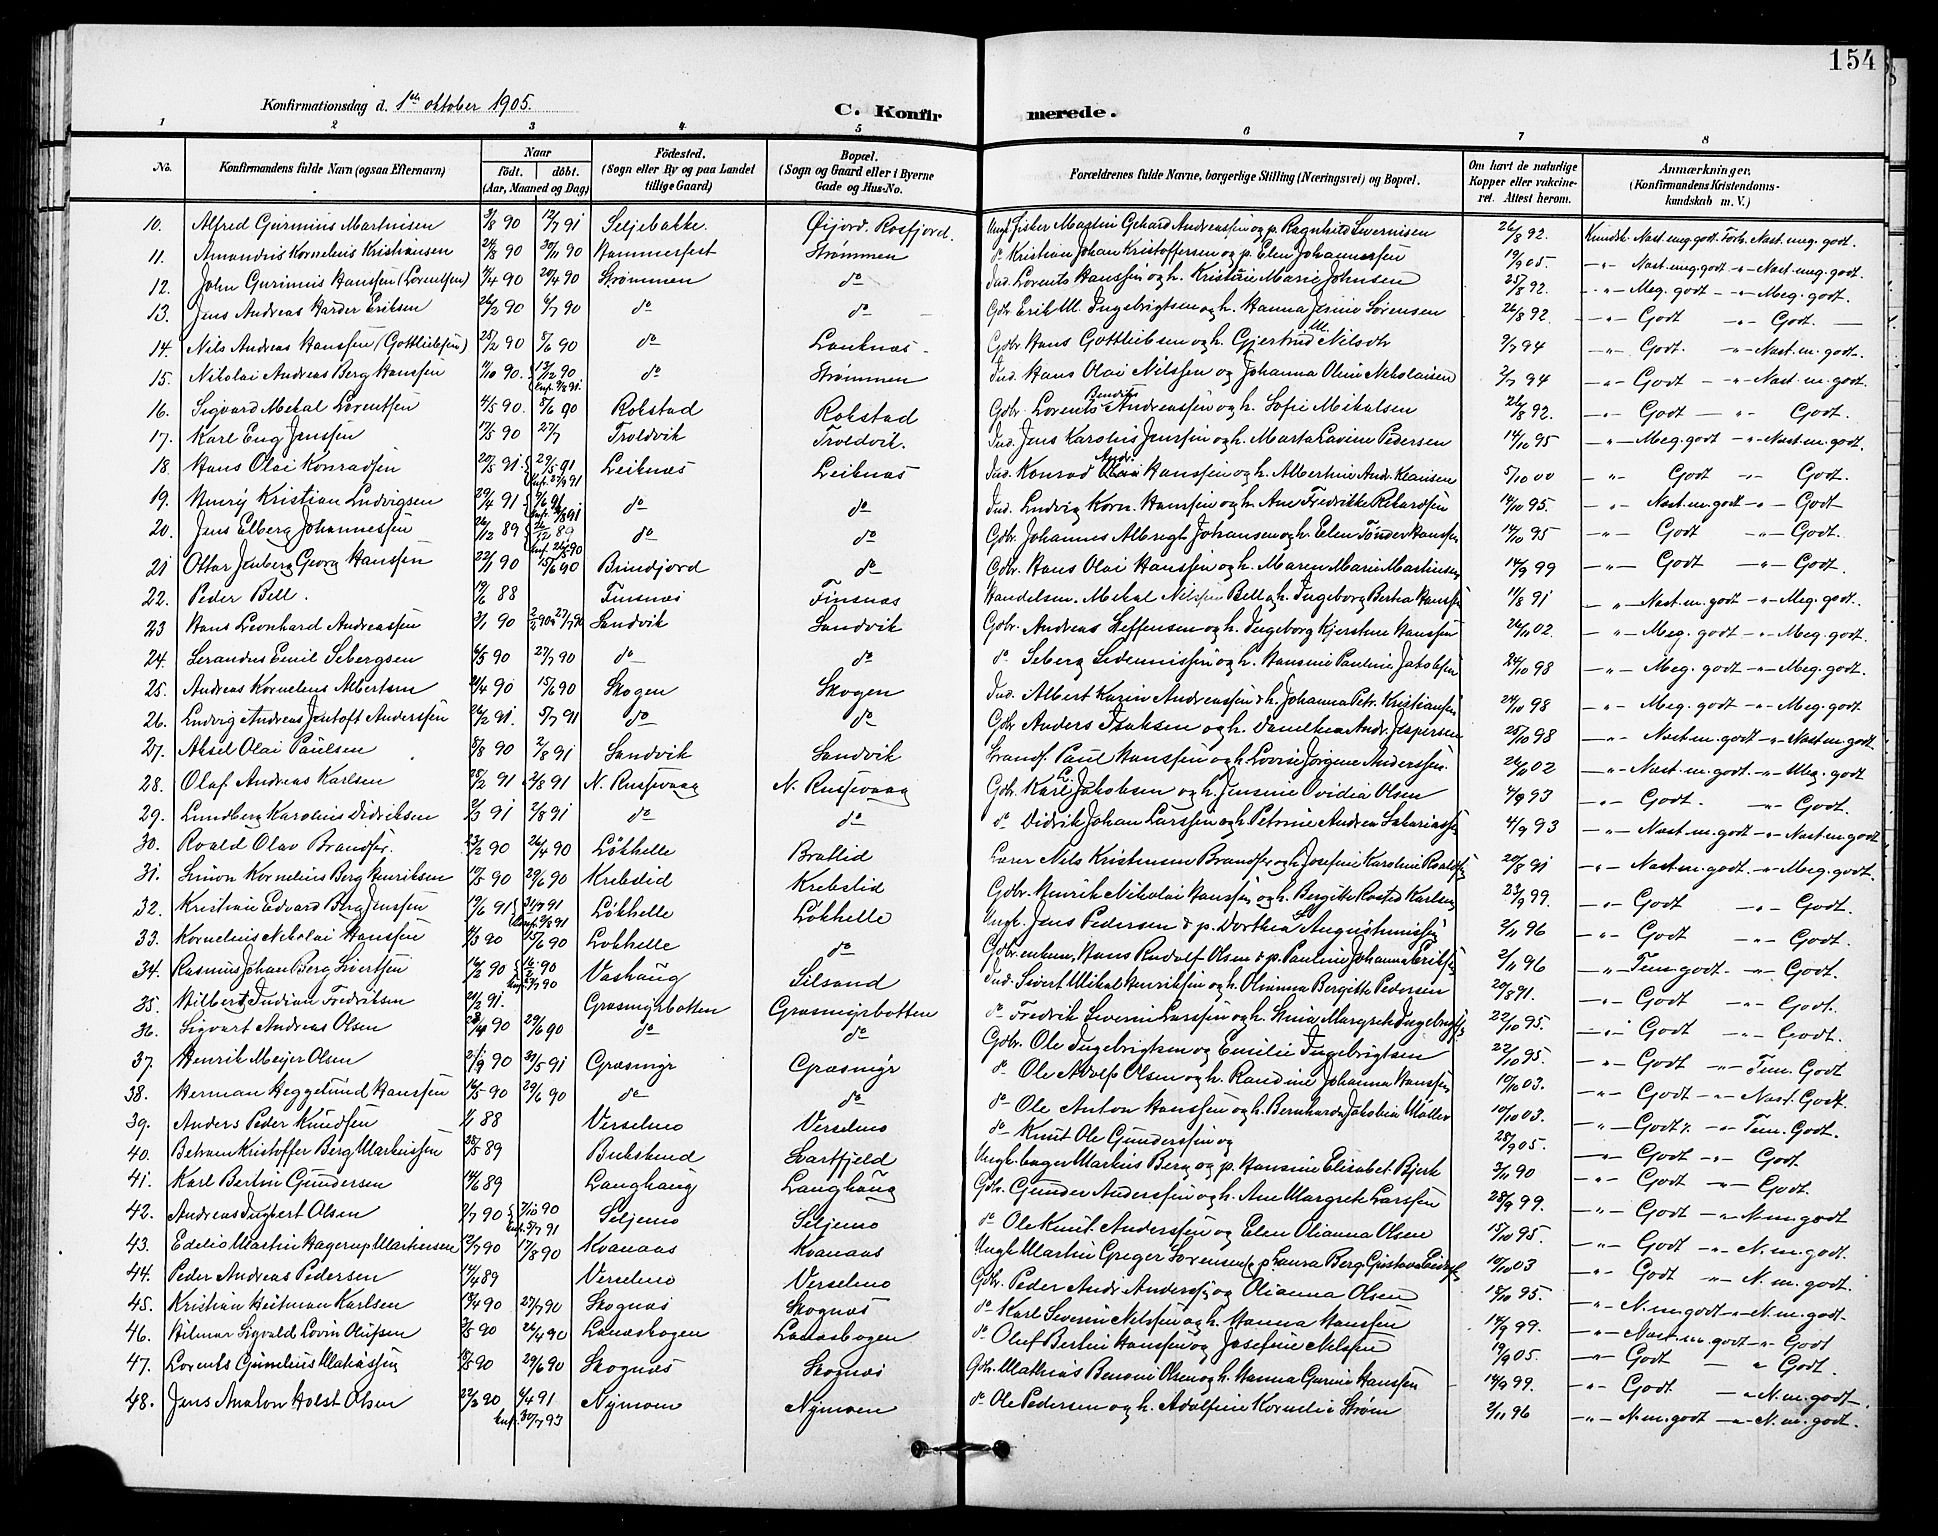 154
Konfirmationsdag d. 1ste oktober 1905.
C. Konfirmerede.
1 2 3 4 5 6 7 8
No. Konfirmandens fulde Navn (ogsaa Efternavn) Naar født. døbt. (Aar, Maaned og Dag) Fødested. (Sogn eller By og paa Landet tillige Gaard) Bopæl. (Sogn og Gaard eller i Byerne Gade og Hus-No. Forældrenes fulde Navne, borgerlige Stilling (Næringsvei) og Bopæl. Om havt de naturlige Kopper eller vakcineret. Attest herom. Anmærkninger. (Konfirmandens Kristendomskundskab m. V.)
10. Alfred Gurinius Martinisen 3/8 90 12/7 91 Seljebakke. Øijord. Rosfjord. Ungk. fisker Martin Gehard Andreassen og p. Ragnhild Severinsen 26/8 92. Kundsk. Nast. meg. godt. Forh. Nast. meg. godt.
11. Amandus Kornelius Kristiansen 24/8 90 30/11 90 Hammerfest Strømmen do Kristian Johan Kristoffersen og p. Elen Johannessen 19/9 05. -"- Nast. meg. godt -"- Nast. meg. godt.
12. John Gurinius Hanssen (Lorentsen) 4/4 90 20/4 90 Strømmen do Ind. Lorents Hanssen og h. Kristine Marie Johnsen 25/8 92. -"- Meg. godt -"- Meg. godt.
13. Jens Andreas Harder Eriksen 26/2 90 6/7 90 do do Gdbr Erik M. Ingebrigtsen og h. Hanna Jesine Sørensen 26/8 92 -"- Godt -"- Godt.
14. Nils Andreas Hanssen (Gottliebsen) 25/2 90 8/6 90 do Lauknæs Gdbr Hans Gottliebsen og h. Gjertrud M. Nilsdtr 9/7 94 -"- Godt. -"- Nast. m. godt.
15. Nikolai Andreas Berg Hanssen 11/10 90. Strømmen Ind. Hans Olai Nilssen og Johanna Oline Nikolaisen 2/7 94 -"- Godt -"- Nast. m. godt.
16. Sigvard Mekal Lorentsen 4/5 90. 8/6 90 Rokstad Rokstad Gdbr. Lorents Andreassen og h. Sofie Mikalsen 26/8 92. -"- Godt -"- Godt.
17. Karl Eug Jenssen 17/5 90 27/7 Troldvik Troldvik. Ind. Jens Karolius Jenssen og h. Marta Lavine Pedersen 14/10 95 -"- Meg. godt -"- Nast. m. godt.
18. Hans Olai Konradsen 20/5 91. 29/5 91 Leiknæs Leiknæs Ind. Konrad Hanssen og h. Albertine Andr. Klausen 5/10 00 -"- Godt -"- Godt
19. Henry Kristian Ludvigsen 29/4 91 do do Ind. Ludvig Korn. Hanssen og h. Ane Fredrikke Rikardsen 14/10 95. -"- Nast. m. godt -"- Godt
20. Jens Elberg Johannessen 26/12 89 do do Gdbr. Johannes Albregt Johansen og h. Elen Tønder Hanssen 14/10 95 -"- Godt -"- Godt.
21 Ottar Jenberg Georg Hanssen 22/1 90 15/6 90 Brundjord do Gdbr. Hans Olai Hanssen og h. Maren Marie Martinsen 14/9 99 -"- Godt -"- Godt.
22. Peder Bell. 19/6 88 Finsnæs Finsnæs Handelsm. Mekal Nilssen Bell og h. Ingeborg Bertea Hanssen 11/8 91 -"- Nast. m. godt -"- Meg. godt.
23 Hans Leonhard Andreassen 3/1 90 Sandvik Sandvik Gdbr. Andreas Steffensen og h. Ingeborg Kjerstine Hanssen 26/11 02. -"- Meg. godt -"- Meg. godt.
24. Serandus Emil Sebergsen 6/5 90 27/7 90 do do do Seberg Sedeniussen og h. Hansine Pauline Jakobsen 24/10 98 -"- Meg. godt -"- Meg. godt.
25. Andreas Kornelius Albertsen 21/4 90 15/6 90 Skogen Skogen Ind. Albert Karin Andreassen & h. Johanna Petr. Kristiansen 24/10 98 -"- Meg. godt -"- Meg. godt.
26. Ludvig Andreas Jentoft Anderssen 26/2 91. 5/7 91 do do Gdbr Anders Isaksen og h. Danelhea Andr. Jespersen 25/10 98 -"- Nast. m. godt -"- Nast. m. godt
27. Aksel Olai Paulsen 8/8 90 2/8 91 Sandvik Sandvik Strands. Paul Hanssen og h. Lovise Jørgine Anderssen. 26/11 02 -"- Nast. m. godt. -"- Meg. godt
28. Olaf Andreas Karlsen 25/2 91 2/8 91 N. Russevaag N. Russevaag Gdbr. Karl Jakobsen og h. Jensine Ovidia Olsen 4/9 93 -"- Godt. -"- Godt.
29. Lundberg Karolius Didriksen 2/3 91 2/8 91 do do do Didrik Johan Larssen og h. Petrine Andrea Sakariassen 4/9 93 -"- Nast. m. godt -"- Nast. m. godt
30. Roald Olav Brandser. 23/2 90 26/4 90 Løkhelle Bratlid Lærer Nils Kristensen Brandser og h. Josefine Karoline Roaldsen 20/8 91 -"- Nast. m. godt. -"- Meg. godt.
31. Simon Kornelius Berg Henriksen 17/5 90 29/6 90 Krebslid Krebslid Gdbr. Henrik Nikolai Hanssen og h. Bergitte Rosted Karlsen 23/9 99. -"- Godt -"- Godt.
32. Kristian Edvard Berg Jenssen 19/6 91 Løkhelle Løkhelle Ungk. Jens Pedersen & p. Dorthea Augustinussen 2/11 96 -"- Godt -"- Godt.
33. Kornelius Nikolai Hanssen 4/3 90 15/6 90 Løkhelle do Gdbr. enkem. Hans Rudolf Olsen & p. Pauline Johanna Eriksen 2/11 96 -"- Tem. godt. -"- Godt.
34. Rasmus Johan Berg Sivertsen 16/2 90 Vashaug Silsand Ind. Sivert Mikal Henriksen og h. Olianna Bergitte Pedersen 20/8 91. -"- Godt -"- Godt.
35. Hilbert Indian Fredriksen 21/2 91. Græsmyrbotten Græsmyrbotten do Fredrik Severin Larssen og h. Stina Margreth Ingebrigts. 22/10 95. -"- Godt -"- Godt.
36. Sigvart Andreas Olsen 29/6 90 do do Gdbr. Ole Ingebrigtsen og Emilie Ingebrigtsen 22/10 95. -"- Godt -"- Tem. Godt
37. Henrik Meijer Olsen 21/9 90 31/5 91 Græsmyr Græsmyr do Ole Adolf Olsen og h. Randine Johanna Hanssen 10/10 03. -"- Godt -"- Nast. Godt.
38. Herman Heggelund Hanssen 16/5 90 29/6 90 do do do Ole Anton Hanssen og h. Bernharda Jakobine Møller 10/10 03. -"- Godt. -"- Tem. Godt.
39. Anders Peder Knudsen 1/1 88 Verselmo Verselmo do Knut Ole Gunderssen og 28/9 05. -"- Godt -"- Godt
40. Betuan Kristoffer Berg Markussen 28/5 89 Bukskind Svartfjeld Ungk. bager Markus Berg og p. Hansine Elisabet Bjerk 3/11 90 -"- Godt -"- Godt.
41. Karl Bertin Gundersen 14/6 89 Langhaug Langhaug Gdbr. Gunder Anderssen og h. Ane Margrete Larssen 28/9 99. -"- Godt -"- N. m. godt
42. Andreas Ingbert Olsen 2/7 90 7/10 90 Seljemo Seljemo do Ole Knut. Anderssen og Elen Olianna Olsen 15/10 95. -"- Godt -"- N. m. godt.
43. Edelio Martin Hagerup Martinsen 12/7 90 17/8 90 Kvanaas Kvanaas Ungk. Martin Greger Sørensen & p. Laura Berg Gustava 10/10 03 -"- Godt -"- N. m. godt.
44. Peder Andreas Pedersen 14/4 89 Verselmo Verselmo Gdbr. Peder Andr. Anderssen og Olianna Olsen 18/10 95. -"- N. m. godt -"- N. m. godt.
45. Kristian Heitman Karlsen 13/4 90 27/7 90 Skognæs Skognæs do Karl Severin Nilssen og h. Hanna Hanssen 14/9 99. -"- Nast. m. godt -"- Godt
46. Hilmar Sigvald Lovin Olufsen 3/5 90 26/4 90 Landskogen Landskogen do Oluf Bertin Hanssen og Josefine Nilsen 19/9 05. -"- Godt -"- Godt.
47. Lorents Gunelius Matiassen 18/5 90 29/6 90 Skognæs Skognæs Gdbr. Mathias Benoni Olsen og h. Hanna Gurine Hanssen 14/9 99. -"- Godt -"- N. m. godt.
48. Jens Anaton Holst Olsen 22/3 90 6/4 91 Konf. 30/7 93 Nymoen Nymoen do Ole Pedersen og h. Adolfine Kornelie Strøm 2/11 96 -"- N. m. godt -"- N. m. godt.